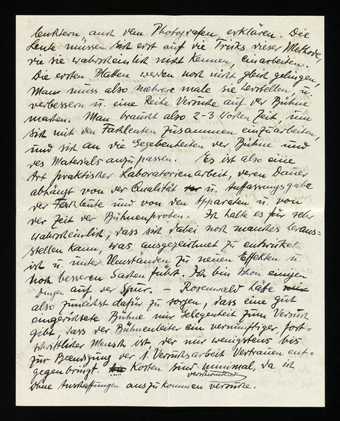 leuchtern auch den Photografen erklären. Die
Leute müssen sich erst auf die Tricks dieser Methode,
die sie wahrscheinlich nicht kennen, einarbeiten.
Die ersten Platten werden noch nicht gleich gelingen,
Man muss also mehrere male sie herstellen, u.
verbessern u. eine Reihe Versuche auf der Bühne
machen. Man braucht also 2-3 Wochen Zeit, um
sich mit den Fachleuten zusammen einzuarbeiten,
und sich an die Gegebenheiten der Bühne und
des Materials anzupassen. Es ist also eine
Art praktischer Laboratorienarbeit, deren Dauer
abhängt von der Qualität u. Auffassungsgabe
der Fachleute und von den Apparaten u. von
der Zeit der Bühnenproben. Ich halte es für sehr
wahrscheinlich, dass sich dabei noch manches heraus-
stellen kann, was ausgezeichnet zu entwickeln
ist u. unter Umständen zu neuen Effekten u.
noch besseren Sachen führt. Ich bin schon einigen
Dingen auf der Spur. – Rosenwald hätte
also zunächst dafür zu sorgen, dass eine gut
eingerichtete Bühne mir Gelegenheit zum Versuch
gibt, dass der Bühnenleiter ein vernünftiger, fort-
schrittlicher Mensch ist, der mir wenigstens bis
zur Beendigung der 1. Versuchsarbeit Vertrauen ent-
gegenbringt. Kosten sind minimal, da ich
ohne Anschaffungen auszukommen versuche.